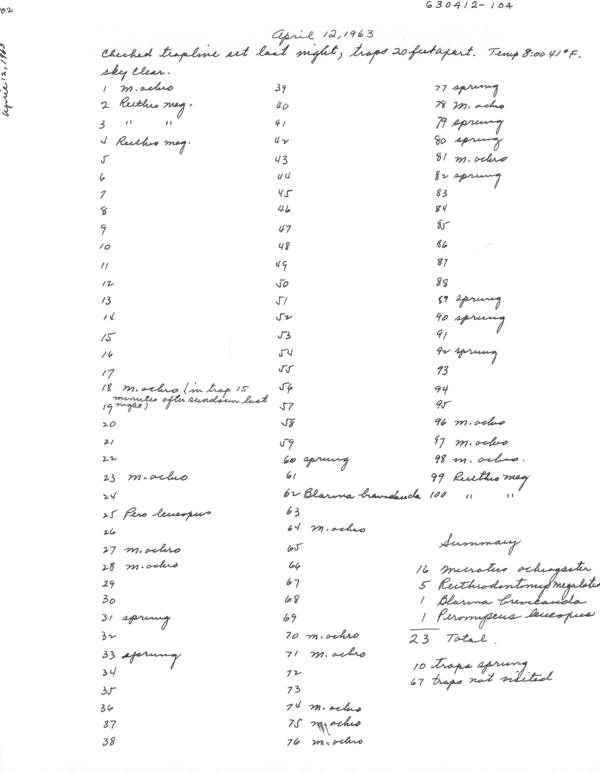 630412-104
02
April 12, 1963
April 12, 1963
Checked trapline set last night, traps 20 feet apart. Temp 8:00 41°F.
sky clear.
1 M. ochro
2 Reithro meg.
3 " "
4 Reithro meg.
5
6
7
8
9
10
11
12
13
14
15
16
17
18 M. ochro (in trap 15
minutes after sundown last
19 night)
20
21
22
23 M. ochro
24
25 Pero leucopus
26
27 M. ochro
28 M. ochro
29
30
31 sprung
32
33 sprung
34
35
36
37
38
39
40
41
42
43
44
45
46
47
48
49
50
51
52
53
54
55
56
57
58
59
60 sprung
61
62 Blarina brevicauda
63
64 M. ochro
65
66
67
68
69
70 M. ochro
71 M. ochro
72
73
74 M. ochro
75 M. ochro
76 M. ochro
77 sprung
78 M. ochro
79 sprung
80 sprung
81 M. ochro
82 sprung
83
84
85
86
87
88
89 sprung
90 sprung
91
92 sprung
93
94
95
96 M. ochro
97 M. ochro
98 M. ochro.
99 Reithro meg
100 " "
Summary
16 Microtus ochrogaster
5 Reithrodontomys megalotis
1 Blarina brevicauda
1 Peromyscus leucopus
23 Total.
10 traps sprung
67 traps not visited